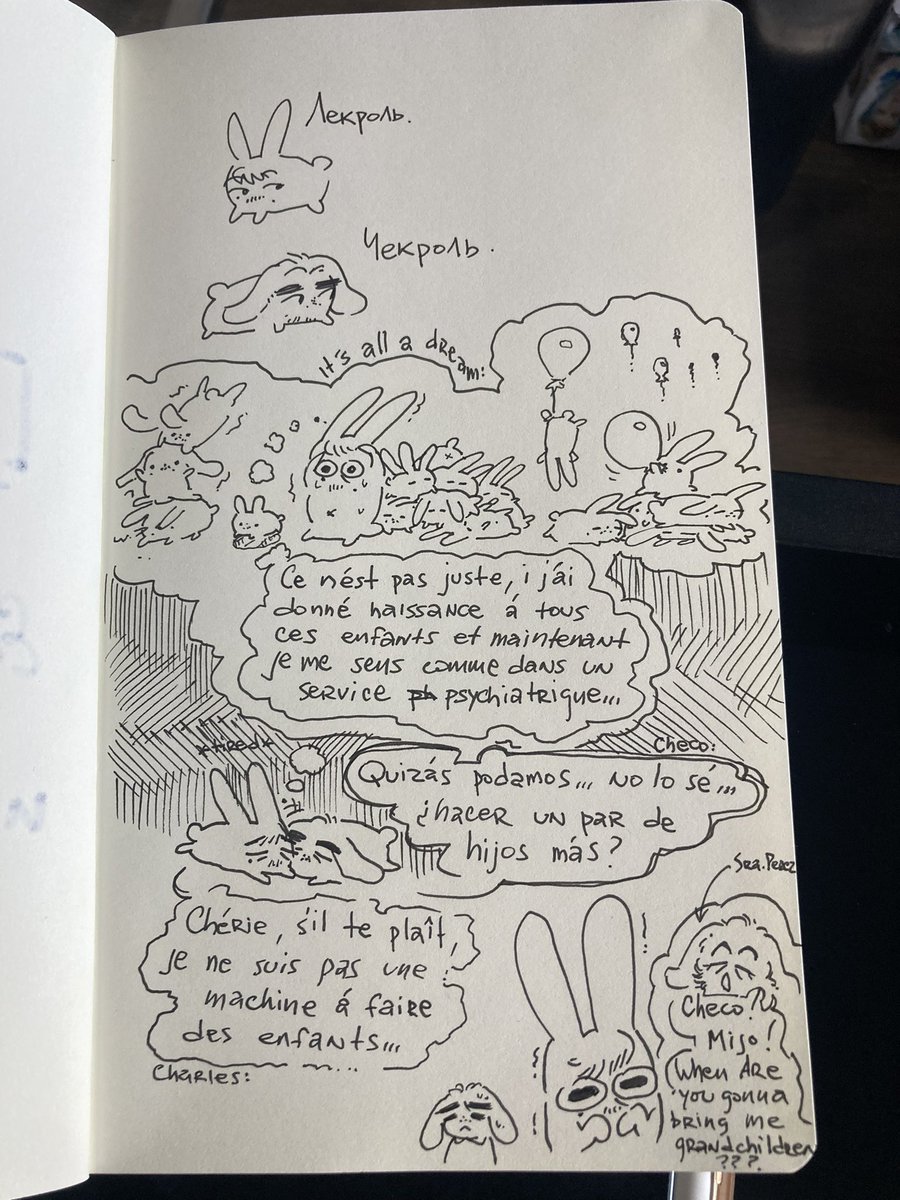 Лекроль.
Чекроль.
It's all a dream:
Ce nést pas juste, i j'ai
donné naissance á tous
ces enfants et maintenant
je me sens comme dans un
service psychiatrique...
*tired*
Checo:
Quizás podamos... No lo sé...
¿hacer un par de
hijos más?
Sra. Perez
Chérie, s'il te plaît,
je ne suis pas une
machine á faire
des enfants...
Charles:
Checo?
Mijo!
When Are
you gonna
bring me
grandchildren
???